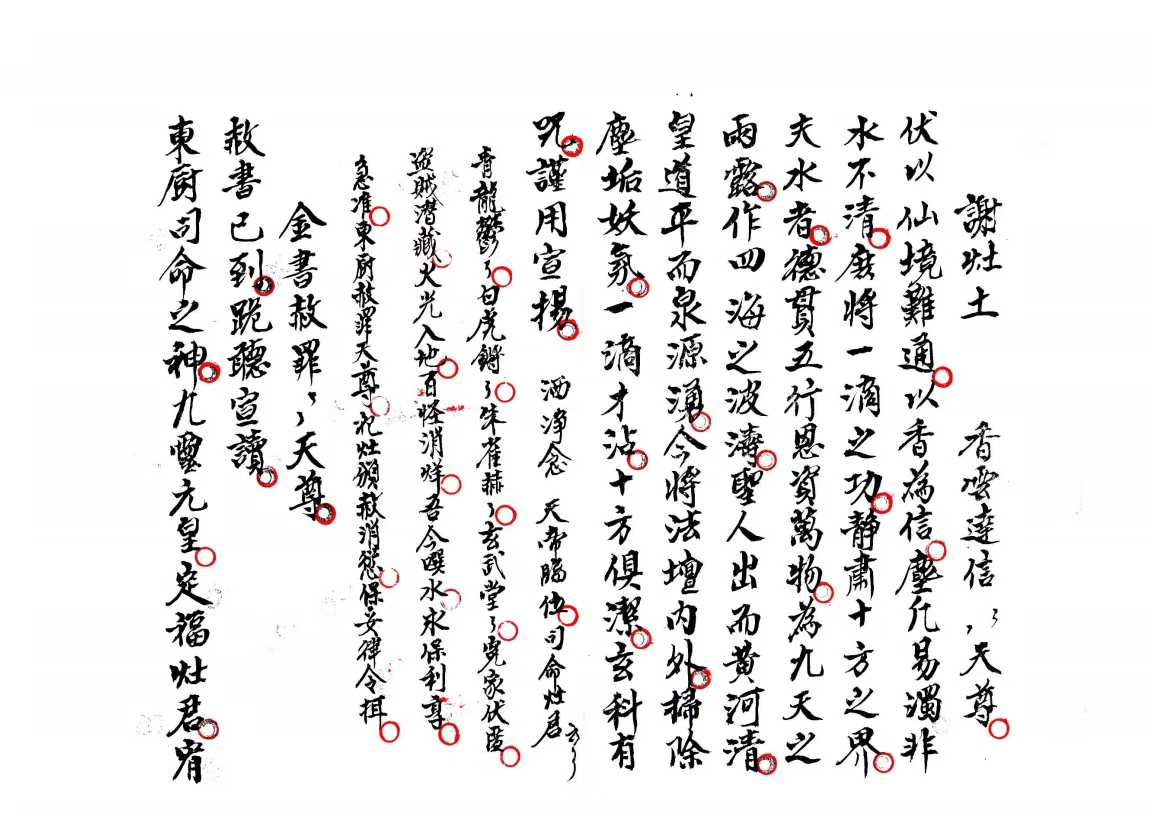 謝灶土　香雲達信〻〻天尊
伏以仙境難通以香為信塵凡易濁非
水不清塵將一滴之功靜肅十方之界
夫水者德貫五行恩資萬物為九天之
雨露作四海之波濤聖人出而黃河清
皇道平而泉源湧今將法壇內外掃除
塵垢妖氛一滴才沾十方俱潔玄科有
咒謹用宣揚　洒淨念　天帝臨位司命灶君
青龍鬱〻白虎鏘〻朱雀赫〻玄武堂〻冤家伏匿
盜賊潛藏火光入地百怪消祥吾今噀水永保利尊
急准東厨赦罪天尊祀灶頒赦消愆保安律令
金書赦罪〻〻天尊
赦書已到跪聽宣讀
東厨司命之神九靈元皇定福灶君